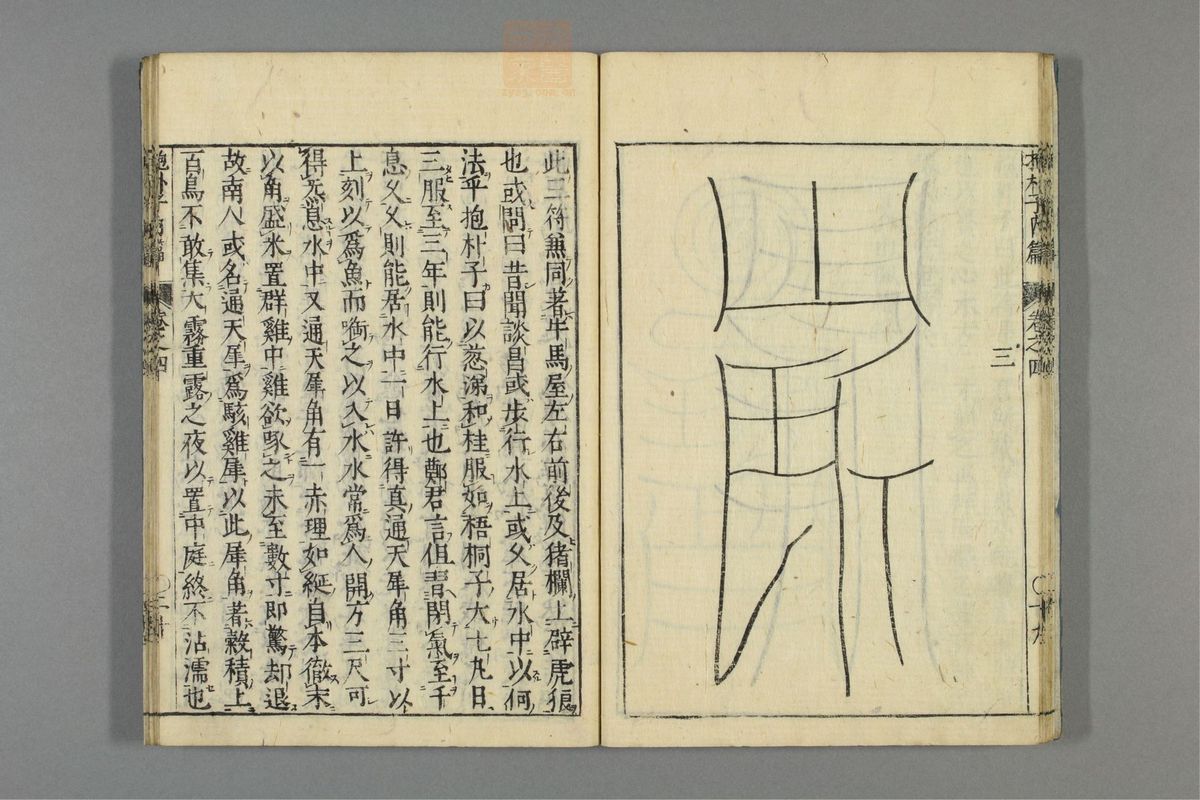 抱朴子内篇 卷之四 十九
三
此三符兼同著牛馬屋左右前後及猪欄上辟虎狼
也或問曰昔聞談昌或步行水上或久居水中以何
法乎抱朴子曰以葱涕和桂服如梧桐子大七丸日
三服至三年則能行水上也鄭君言但習閉氣至千
息久久則能居水中一日許得真通天犀角三寸以
上刻以爲魚而啣之以入水水常爲人開方三尺可
得炁息水中又通天犀角有一赤理如綖自本徹末
以角盛米置群雞中雞欲啄之未至數寸即驚却退
故南人或名通天犀爲駭雞犀以此犀角著穀積上
百鳥不敢集大霧重露之夜以置中庭終不沾濡也
抱朴子内篇 卷之四